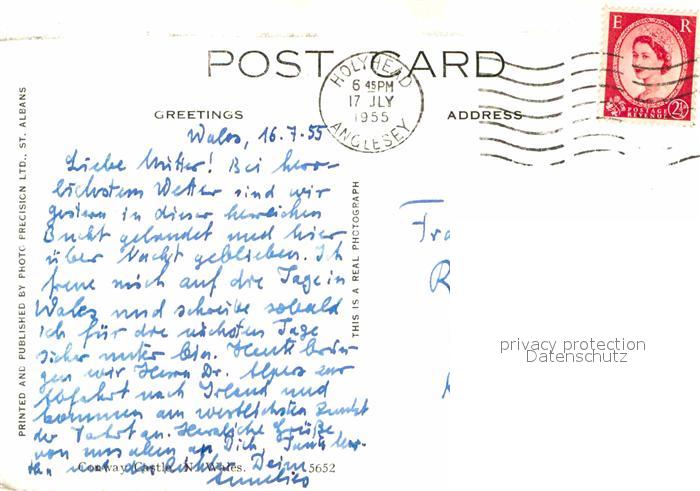 POST CARD
E R
POSTAGE
REVENUE
2½
HOLYHEAD
6 45PM
17 JLY
1955
ANGLESEY
GREETINGS
ADDRESS
PRINTED AND PUBLISHED BY PHOTO PRECISION LTD., ST. ALBANS
THIS IS A REAL PHOTOGRAPH
Wales, 16.7.55
Liebe Mutter! Bei herr-
lichstem Wetter sind wir
gestern in dieser herrlichen
Bucht gelandet und hier
über Nacht geblieben. Ich
freue mich auf die Tage in
Wales und schreibe sobald
ich für die nächsten Tage
sicher unter bin. Heute brin-
gen wir Herrn Dr. Alpers zur
Abfahrt nach Irland und
kommen am westlichsten Punkt
der Fahrt an. Herzliche Grüße
von uns allen an Dich, Tante
und Deine
Annelies
Conway Castle, N. Wales. 5652
Fra
R
privacy protection
Datenschutz